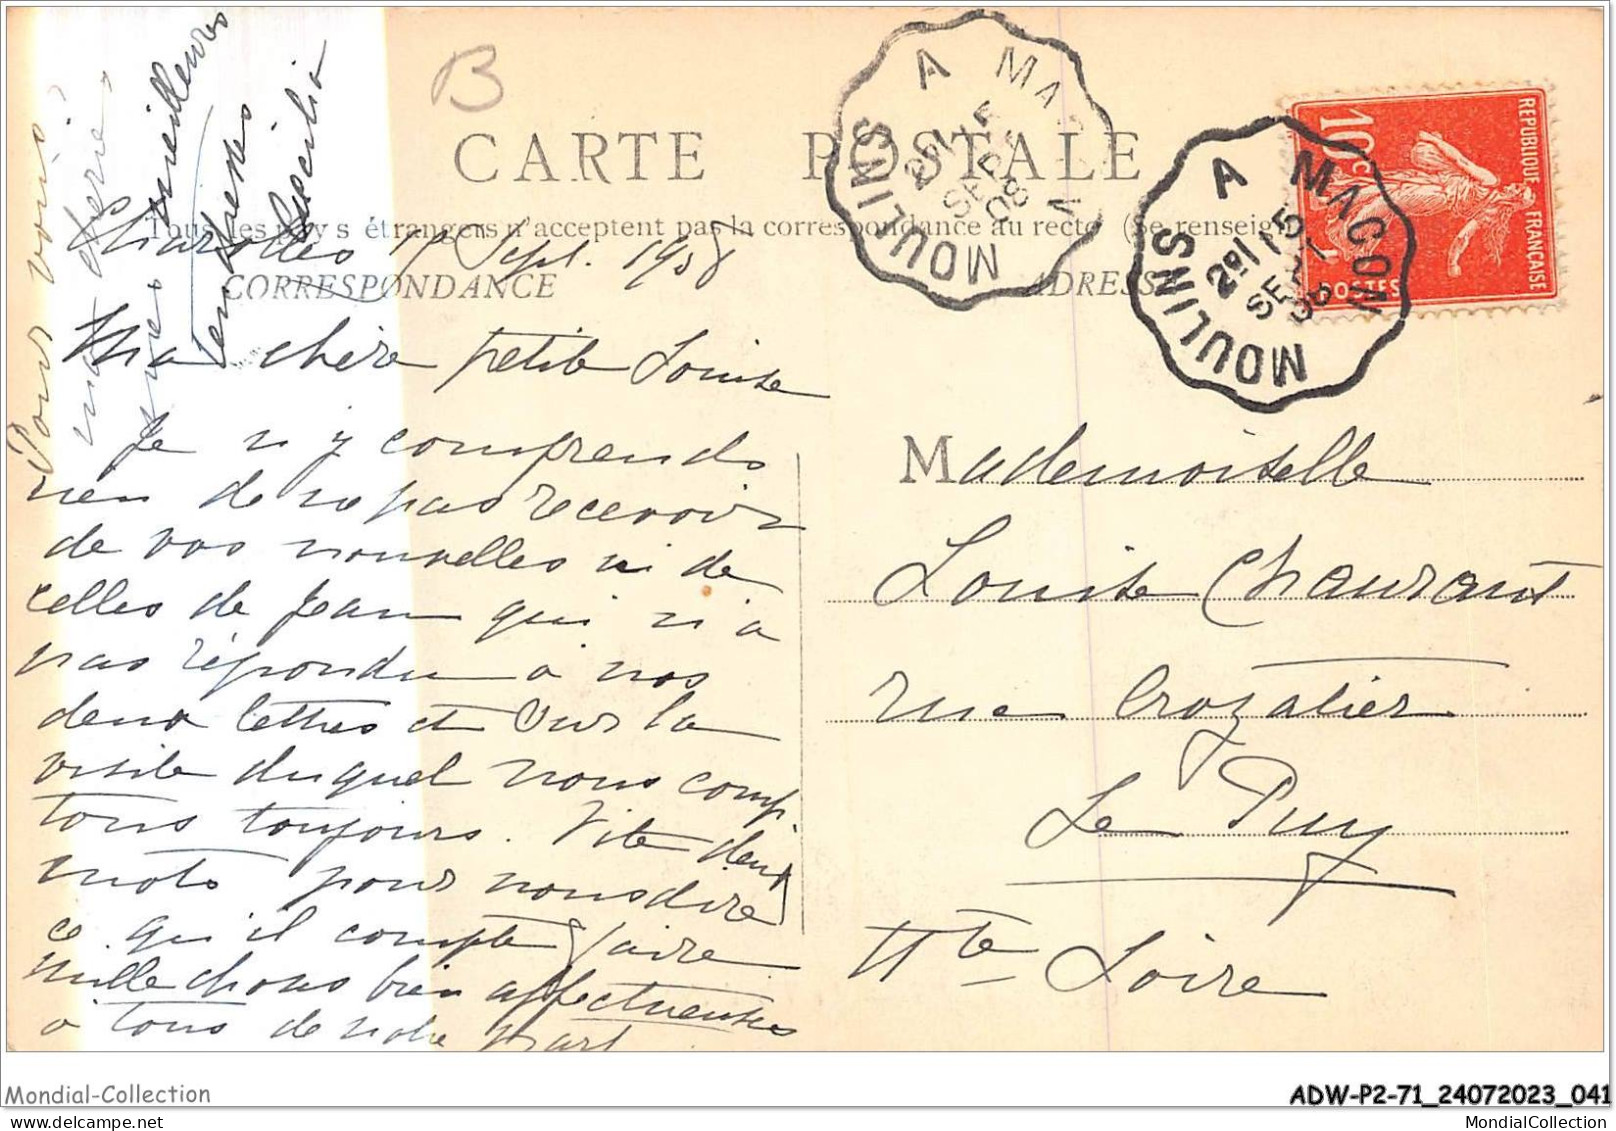 B
CARTE POSTALE
Tous les pays étrangers n'acceptent pas la correspondance au recto (Se renseigner
CORRESPONDANCE
ADRESSE
MOULINS A MA
2º/15
SEPT
08
MOULINS A MACON
2º/15
SEPT
08
REPUBLIQUE FRANÇAISE
10c
POSTES
Charolles Sept. 1908
Ma chère petite Louise
Je n'y comprends
rien de ne pas recevoir
de vos nouvelles ni de
celles de Jean qui n'a
pas répondu à nos
deux lettres et sur la
visite duquel nous comp
tons toujours. Vite deux
mots pour nous dire
ce qu'il compte faire
Mille choses bien affectueuses
à tous de notre part
Pour vous,
ma chère,
mes meilleures
tendresses
Mademoiselle
Louise Chaurant
rue Crozatier
Le Puy
Hte Loire
Mondial-Collection
ADW-P2-71_24072023_041
MondialCollection.com